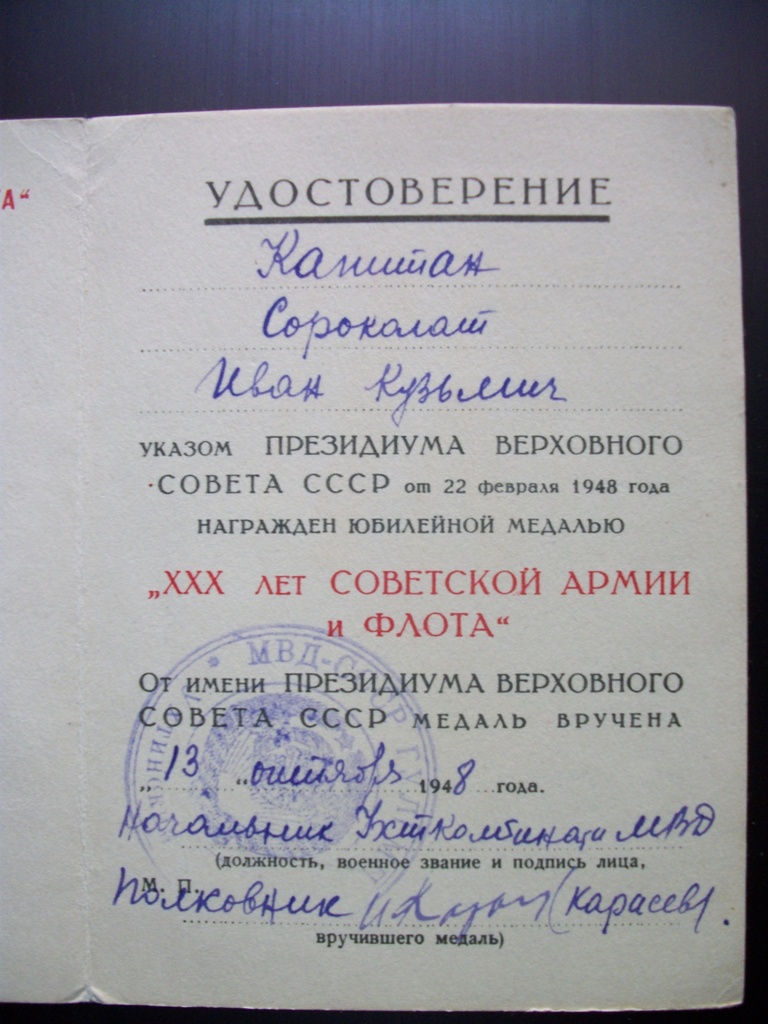 А“
УДОСТОВЕРЕНИЕ
Капитан
Сороколат
Иван Кузьмич
УКАЗОМ ПРЕЗИДИУМА ВЕРХОВНОГО
СОВЕТА СССР от 22 февраля 1948 года
НАГРАЖДЕН ЮБИЛЕЙНОЙ МЕДАЛЬЮ
„XXX лет СОВЕТСКОЙ АРМИИ
и ФЛОТА“
МВД-СССР
От имени ПРЕЗИДИУМА ВЕРХОВНОГО
СОВЕТА СССР МЕДАЛЬ ВРУЧЕНА
„13“ октября 1948 года.
Начальник Ухткомбината МВД
(должность, военное звание и подпись лица,
М. П.
Полковник (Карасев).
вручившего медаль)